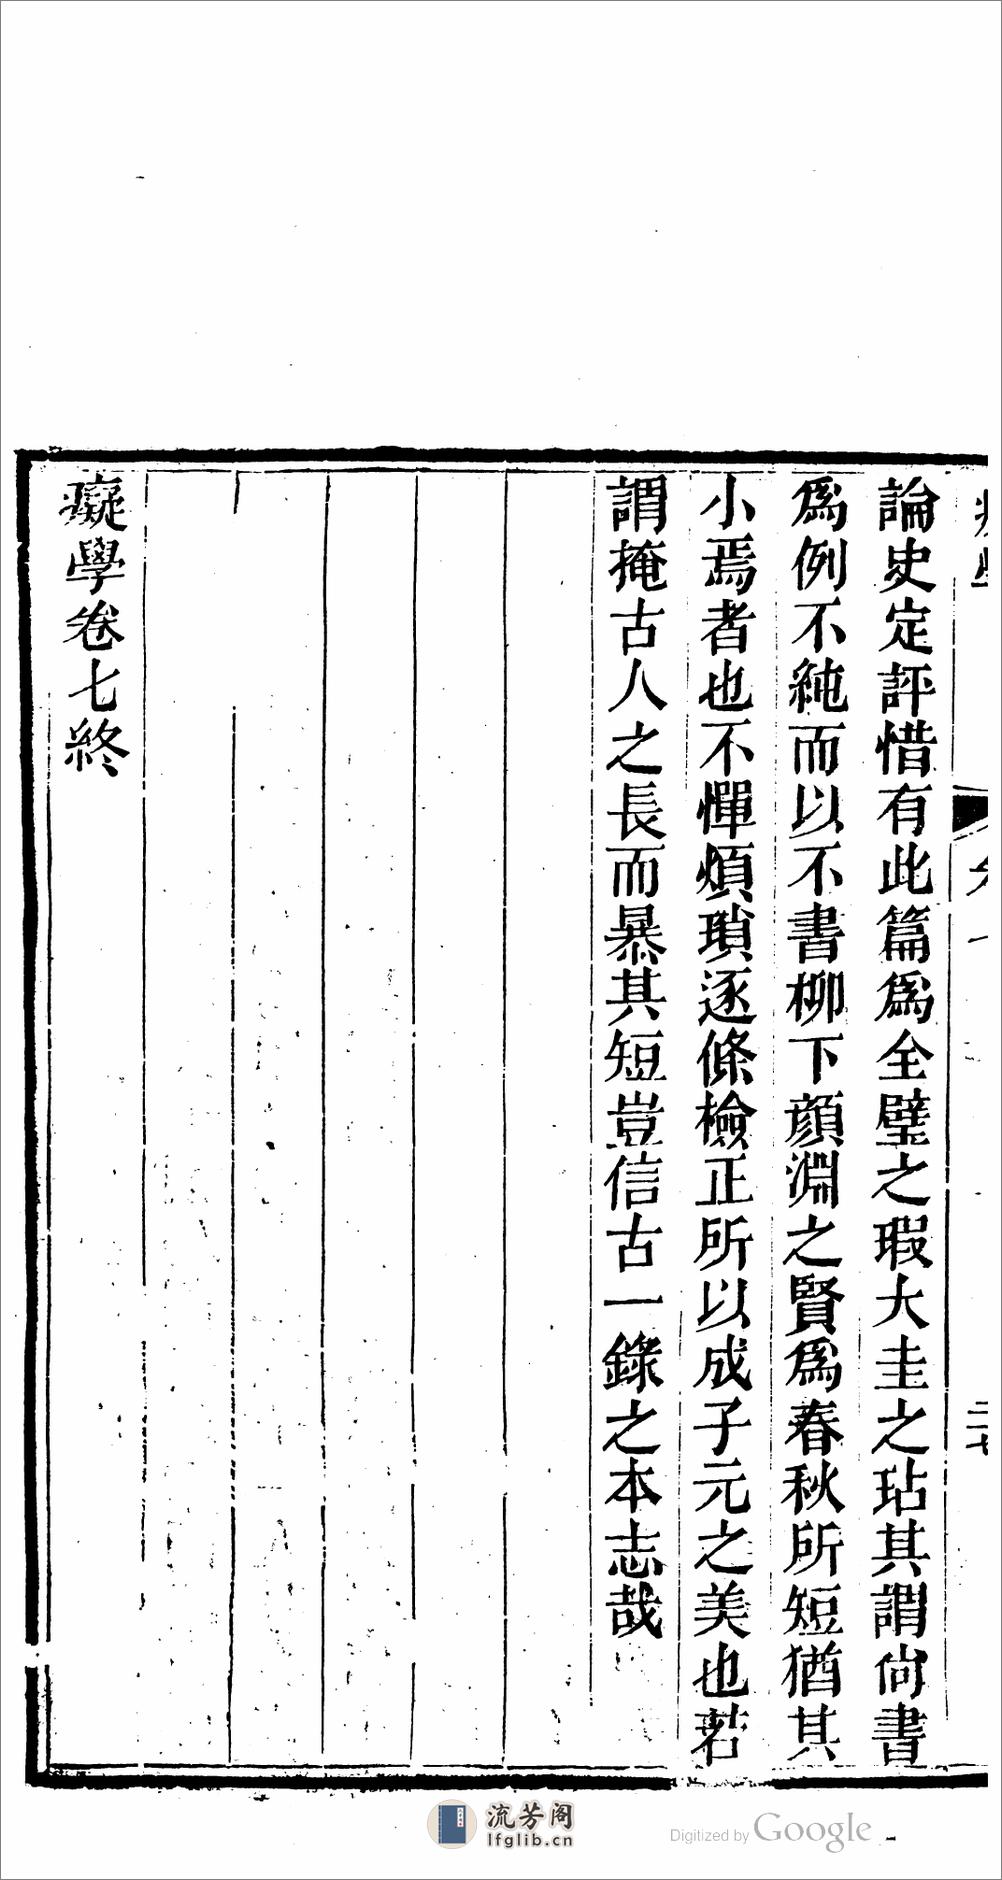 論史定評惜有此篇爲全璧之瑕大圭之玷其謂尙書
爲例不純而以不書柳下顔淵之賢爲春秋所短猶其
小焉者也不憚煩瑣逐條檢正所以成子元之美也若
謂掩古人之長而暴其短豈信古一錄之本志哉
癡學卷七終
流芳阁
lfglib.cn
Digitized by Google